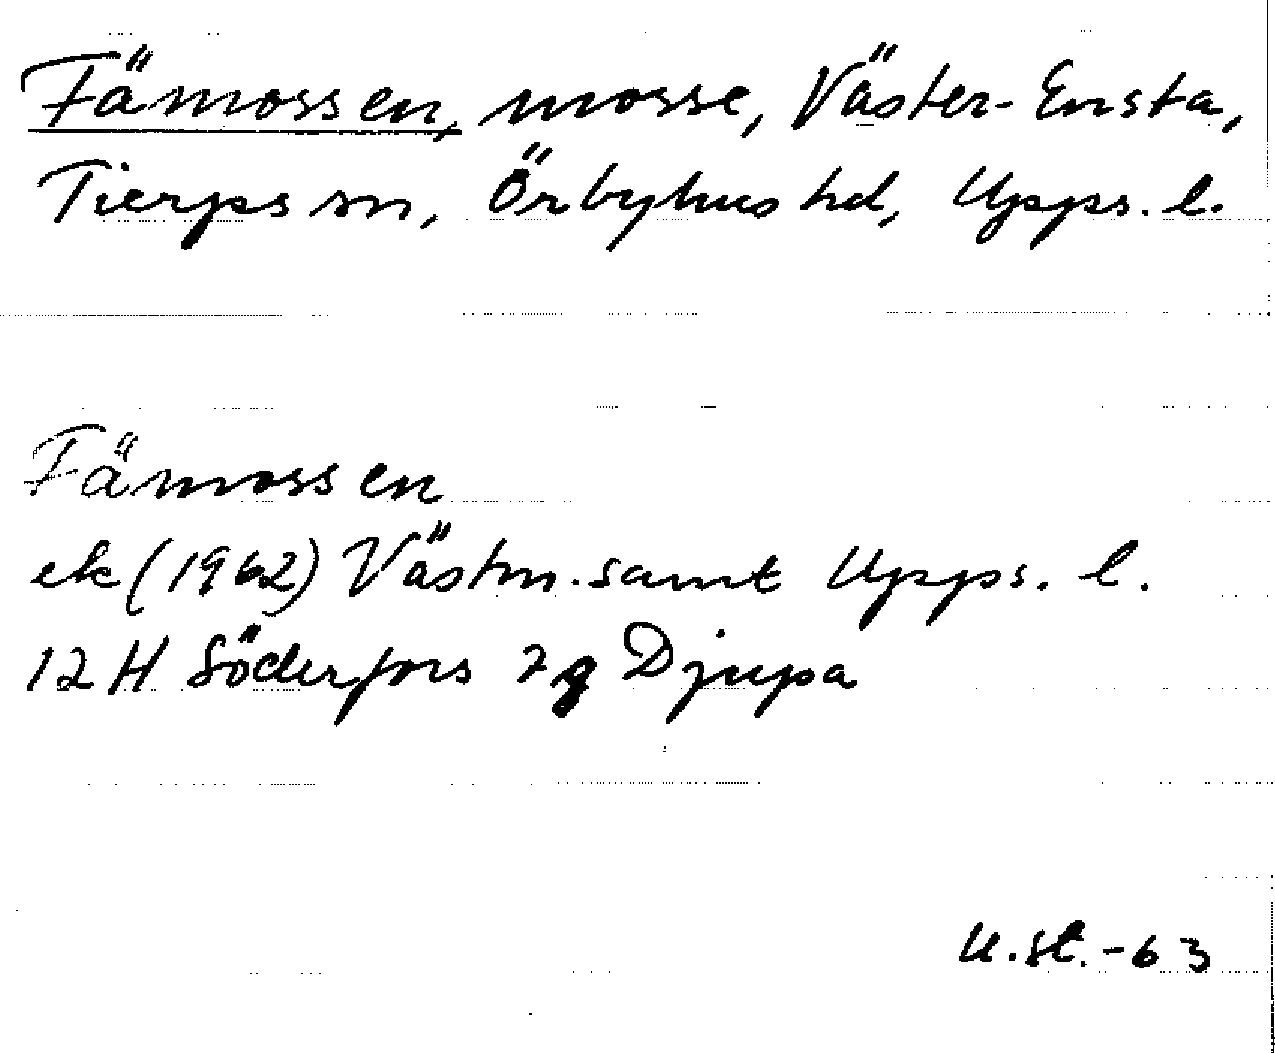 Fämossen, mosse, Väster-Ensta,
Tierps sn, Örbyhus hd, Upps. l.
Fämossen
ek (1962) Västm. samt Upps. l.
12 H Söderfors 7 g Djupa
U.St. -63